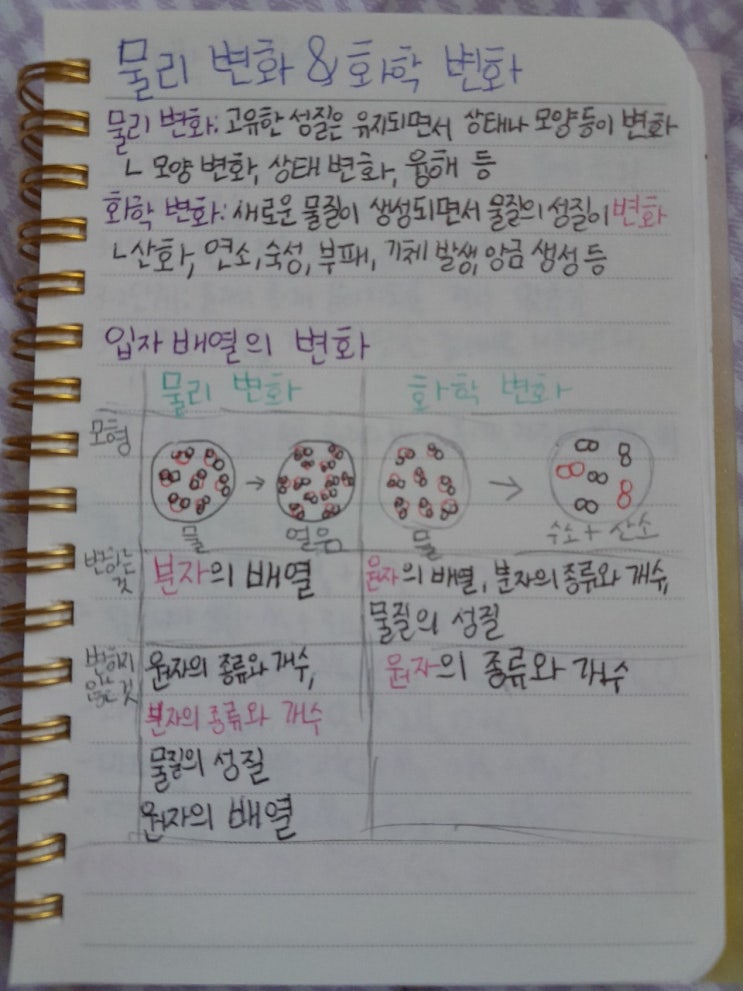 물리 변화 & 화학 변화
물리 변화: 고유한 성질은 유지되면서 상태나 모양 등이 변화
ㄴ 모양 변화, 상태 변화, 용해 등
화학 변화: 새로운 물질이 생성되면서 물질의 성질이 변화
ㄴ 산화, 연소, 숙성, 부패, 기체 발생, 앙금 생성 등
입자 배열의 변화
물리 변화 화학 변화
모형
물 얼음 물 수소 + 산소
변하는 것 분자의 배열 원자의 배열, 분자의 종류와 개수,
물질의 성질
변하지 않는 것 원자의 종류와 개수, 원자의 종류와 개수
분자의 종류와 개수
물질의 성질
원자의 배열